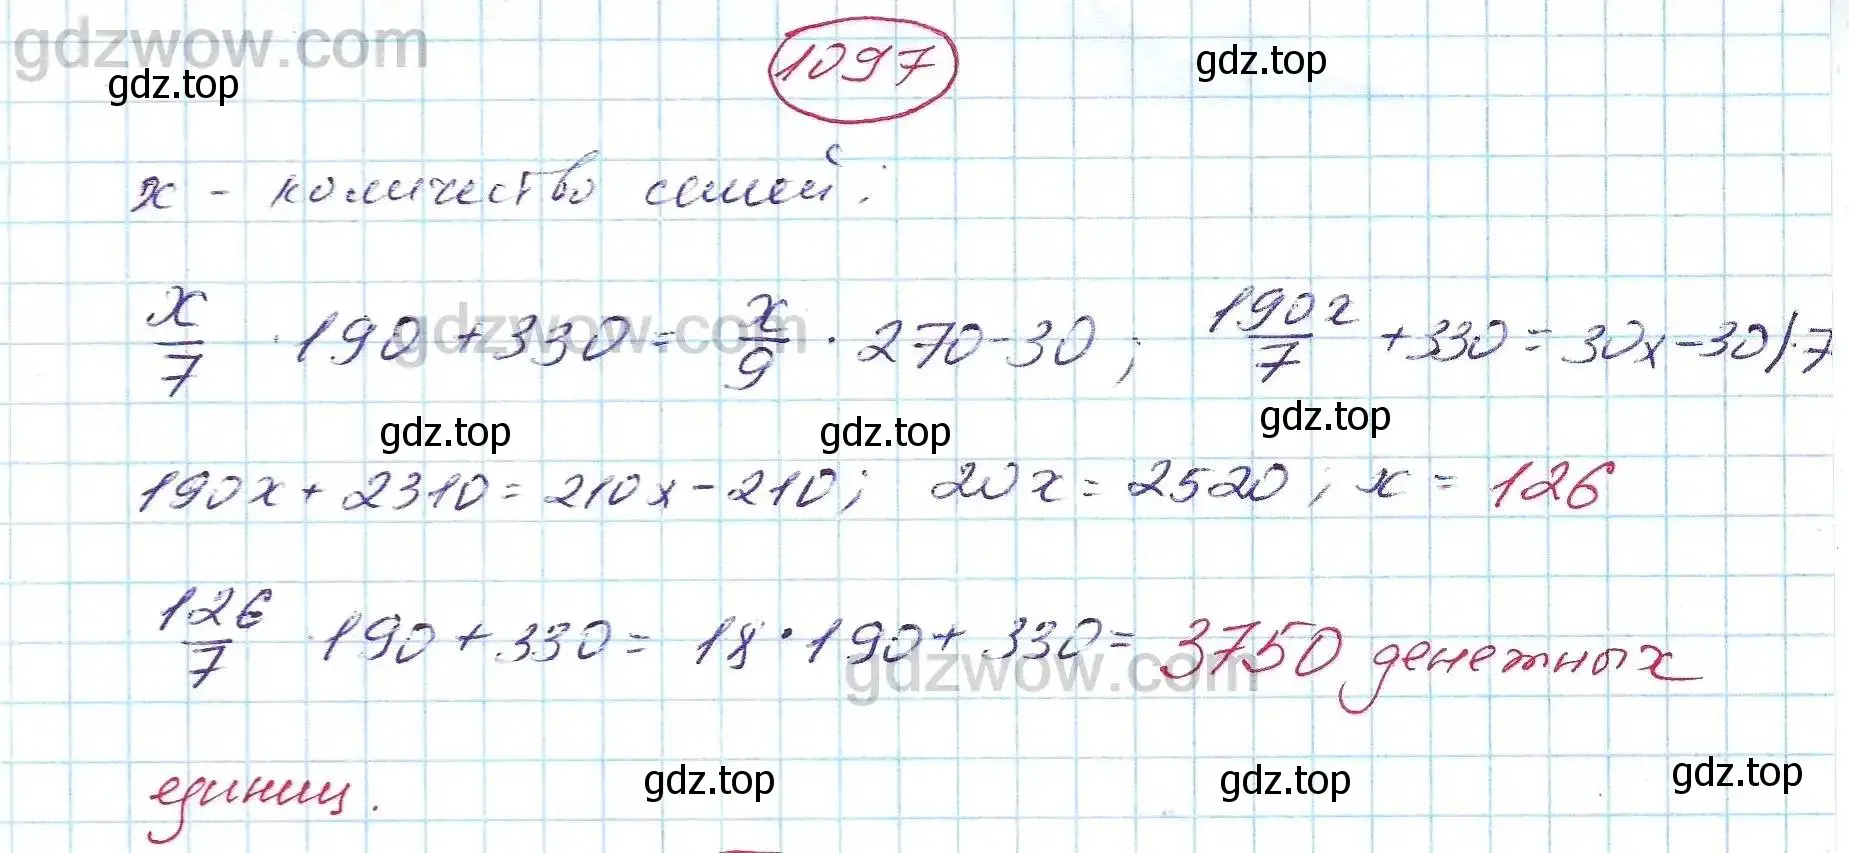 gdzwow.com
gdz.top 1097 gdz.top
x - количество семей:
x/7 · 190 + 330 = x/9 · 270 - 30; 190x/7 + 330 = 30x - 30 |·7
gdzwow.com
gdz.top gdz.top gdz.top
190x + 2310 = 210x - 210; 20x = 2520; x = 126
126/7 · 190 + 330 = 18 · 190 + 330 = 3750 денежных
gdzwow.com
единиц.
gdz.top gdz.top gdz.top